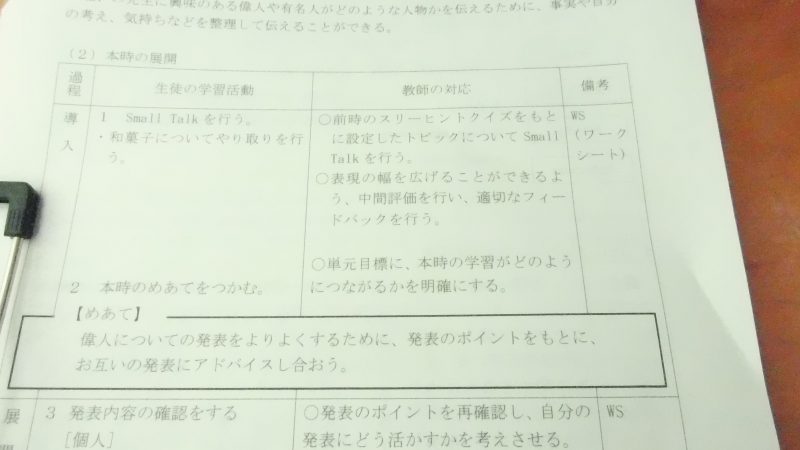 に興味のある偉人や有名人がどのような人物かを伝えるために、事実や自分
の考え、気持ちなどを整理して伝えることができる。
(2) 本時の展開
過程
生徒の学習活動
教師の対応
備考
導入
1 Small Talkを行う。
・和菓子についてやり取りを行
う。
○前時のスリーヒントクイズをもと
に設定したトピックについてSmall
Talkを行う。
○表現の幅を広げることができるよ
う、中間評価を行い、適切なフィー
ドバックを行う。
WS
(ワーク
シート)
2 本時のめあてをつかむ。
○単元目標に、本時の学習がどのよう
につながるかを明確にする。
【めあて】
偉人についての発表をよりよくするために、発表のポイントをもとに、
お互いの発表にアドバイスし合おう。
展
3 発表内容の確認をする
[個人]
○発表のポイントを再確認し、自分の
発表にどう活かすかを考えさせる。
WS